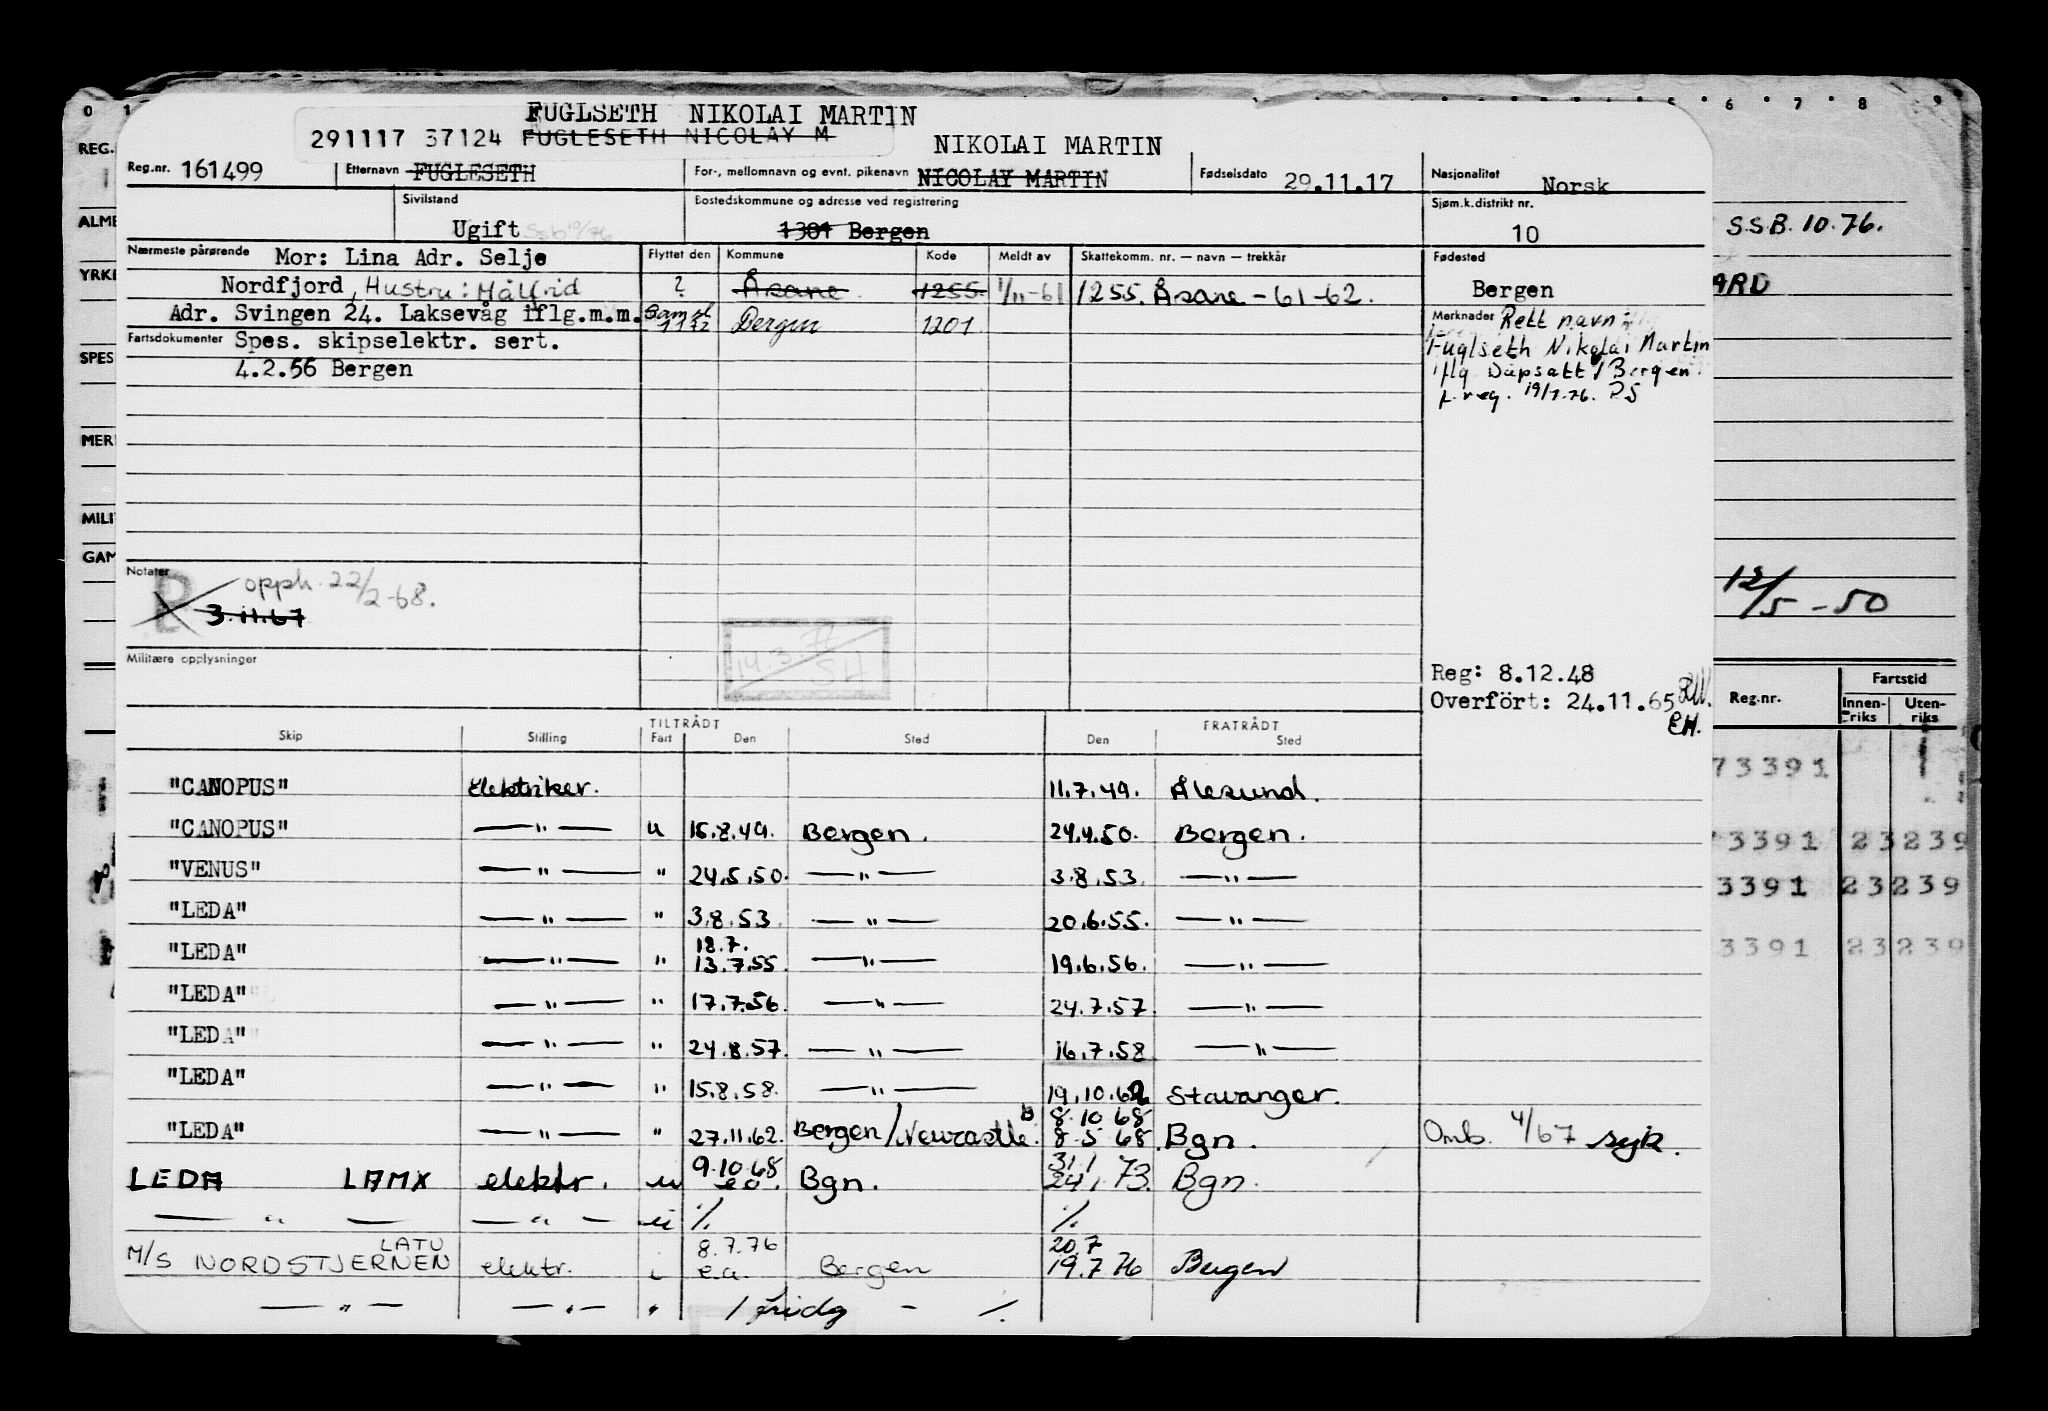 FUGLSETH NIKOLAI MARTIN
291117 37124 FUGLESETH NICOLAY M
NIKOLAI MARTIN
Reg.nr. 161499 Etternavn FUGLESETH For-, mellomnavn og evnt. pikenavn NICOLAY MARTIN Fødselsdato 29.11.17 Nasjonalitet Norsk
Sivilstand Ugift Ssb 10/76 Bostedskommune og adresse ved registrering 1301 Bergen Sjøm.k.distrikt nr. 10
Nærmeste pårørende Mor: Lina Adr. Selje
Nordfjord, Hustru: Målfrid
Adr. Svingen 24. Laksevåg iflg.m.m.
Fartsdokumenter Spes. skipselektr. sert.
4.2.56 Bergen
Flyttet den Kommune Kode Meldt av Skattekomm. nr. — navn — trekkår
? Åsane 1255 1/11-61 1255 Åsane - 61-62.
Bergen 1201
Fødested Bergen
Merknader Rett navn
Fuglseth Nikolai Martin
iflg Dåpsatt / Bergen
f.reg. 19/7.76. PS
Notater
opph. 22/2-68.
3.11.67
Militære opplysninger
14.3.77
SH
Reg: 8.12.48
Overfört: 24.11.65
EH.
TILTRÅDT FRATRÅDT
Skip Stilling Fart Den Sted Den Sted
"CANOPUS" Elektriker. 11.7.49. Ålesund.
"CANOPUS" — " — u 15.8.49. Bergen. 24.4.50. Bergen.
"VENUS" — " — " 24.5.50. — " — 3.8.53. — " —
"LEDA" — " — " 3.8.53 — " — 20.6.55. — " —
18.7.
"LEDA" — " — " 13.7.55. — " — 19.6.56. — " —
"LEDA" — " — " 17.7.56. — " — 24.7.57. — " —
"LEDA" — " — " 24.8.57. — " — 16.7.58 — " —
"LEDA" — " — " 15.8.58. — " — 19.10.62 Stavanger.
8.10 68
"LEDA" — " — " 27.11.62. Bergen/Newcastle. 8.5 68 Bgn. Omb. 4/67 syk.
9.10.68 31/1
LEDA LAMX elektr. u e.o. Bgn. 24/1 73. Bgn.
— " — — " — ui ./. ./.
LATU 8.7.76 20.7
M/S NORDSTJERNEN elektr. i e.a. Bergen 19.7 76 Bergen
— " — — " — " 1 fridg - ./.
0 1 5 6 7 8 9
REG.
ALME
YRKE
SPES
MERI
MILI
GAM
S.S.B. 10.76.
ARD
12/5 - 50
Reg.nr. Fartstid
Innen-riks Uten-riks
73391
3391 23239
3391 23239
3391 23239